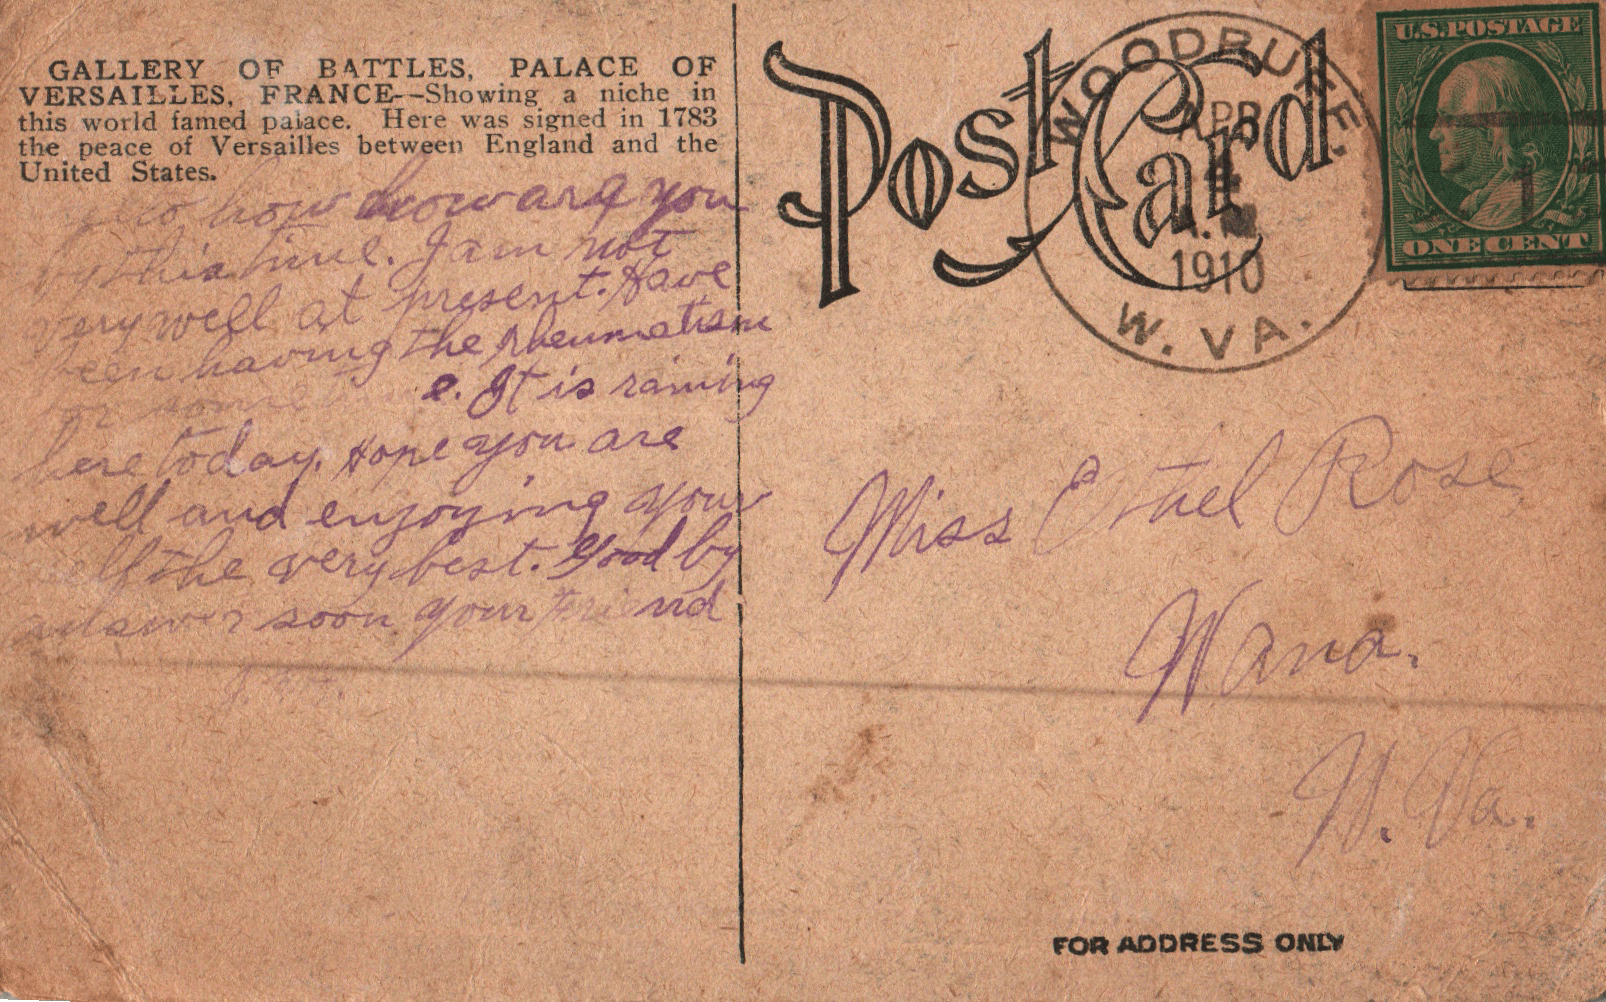 GALLERY OF BATTLES, PALACE OF
VERSAILLES, FRANCE--Showing a niche in
this world famed palace. Here was signed in 1783
the peace of Versailles between England and the
United States.
how are you
by this time. I am not
very well at present. Have
been having the rheumatism
for some e. It is raining
here today. Hope you are
well and enjoying your
self the very best. Good by
answer soon your friend
Post Card
WOODBURY
APR
1910
W. VA.
U.S. POSTAGE
ONE CENT
Miss Ethel Rose
Wana.
W. Va.
FOR ADDRESS ONLY